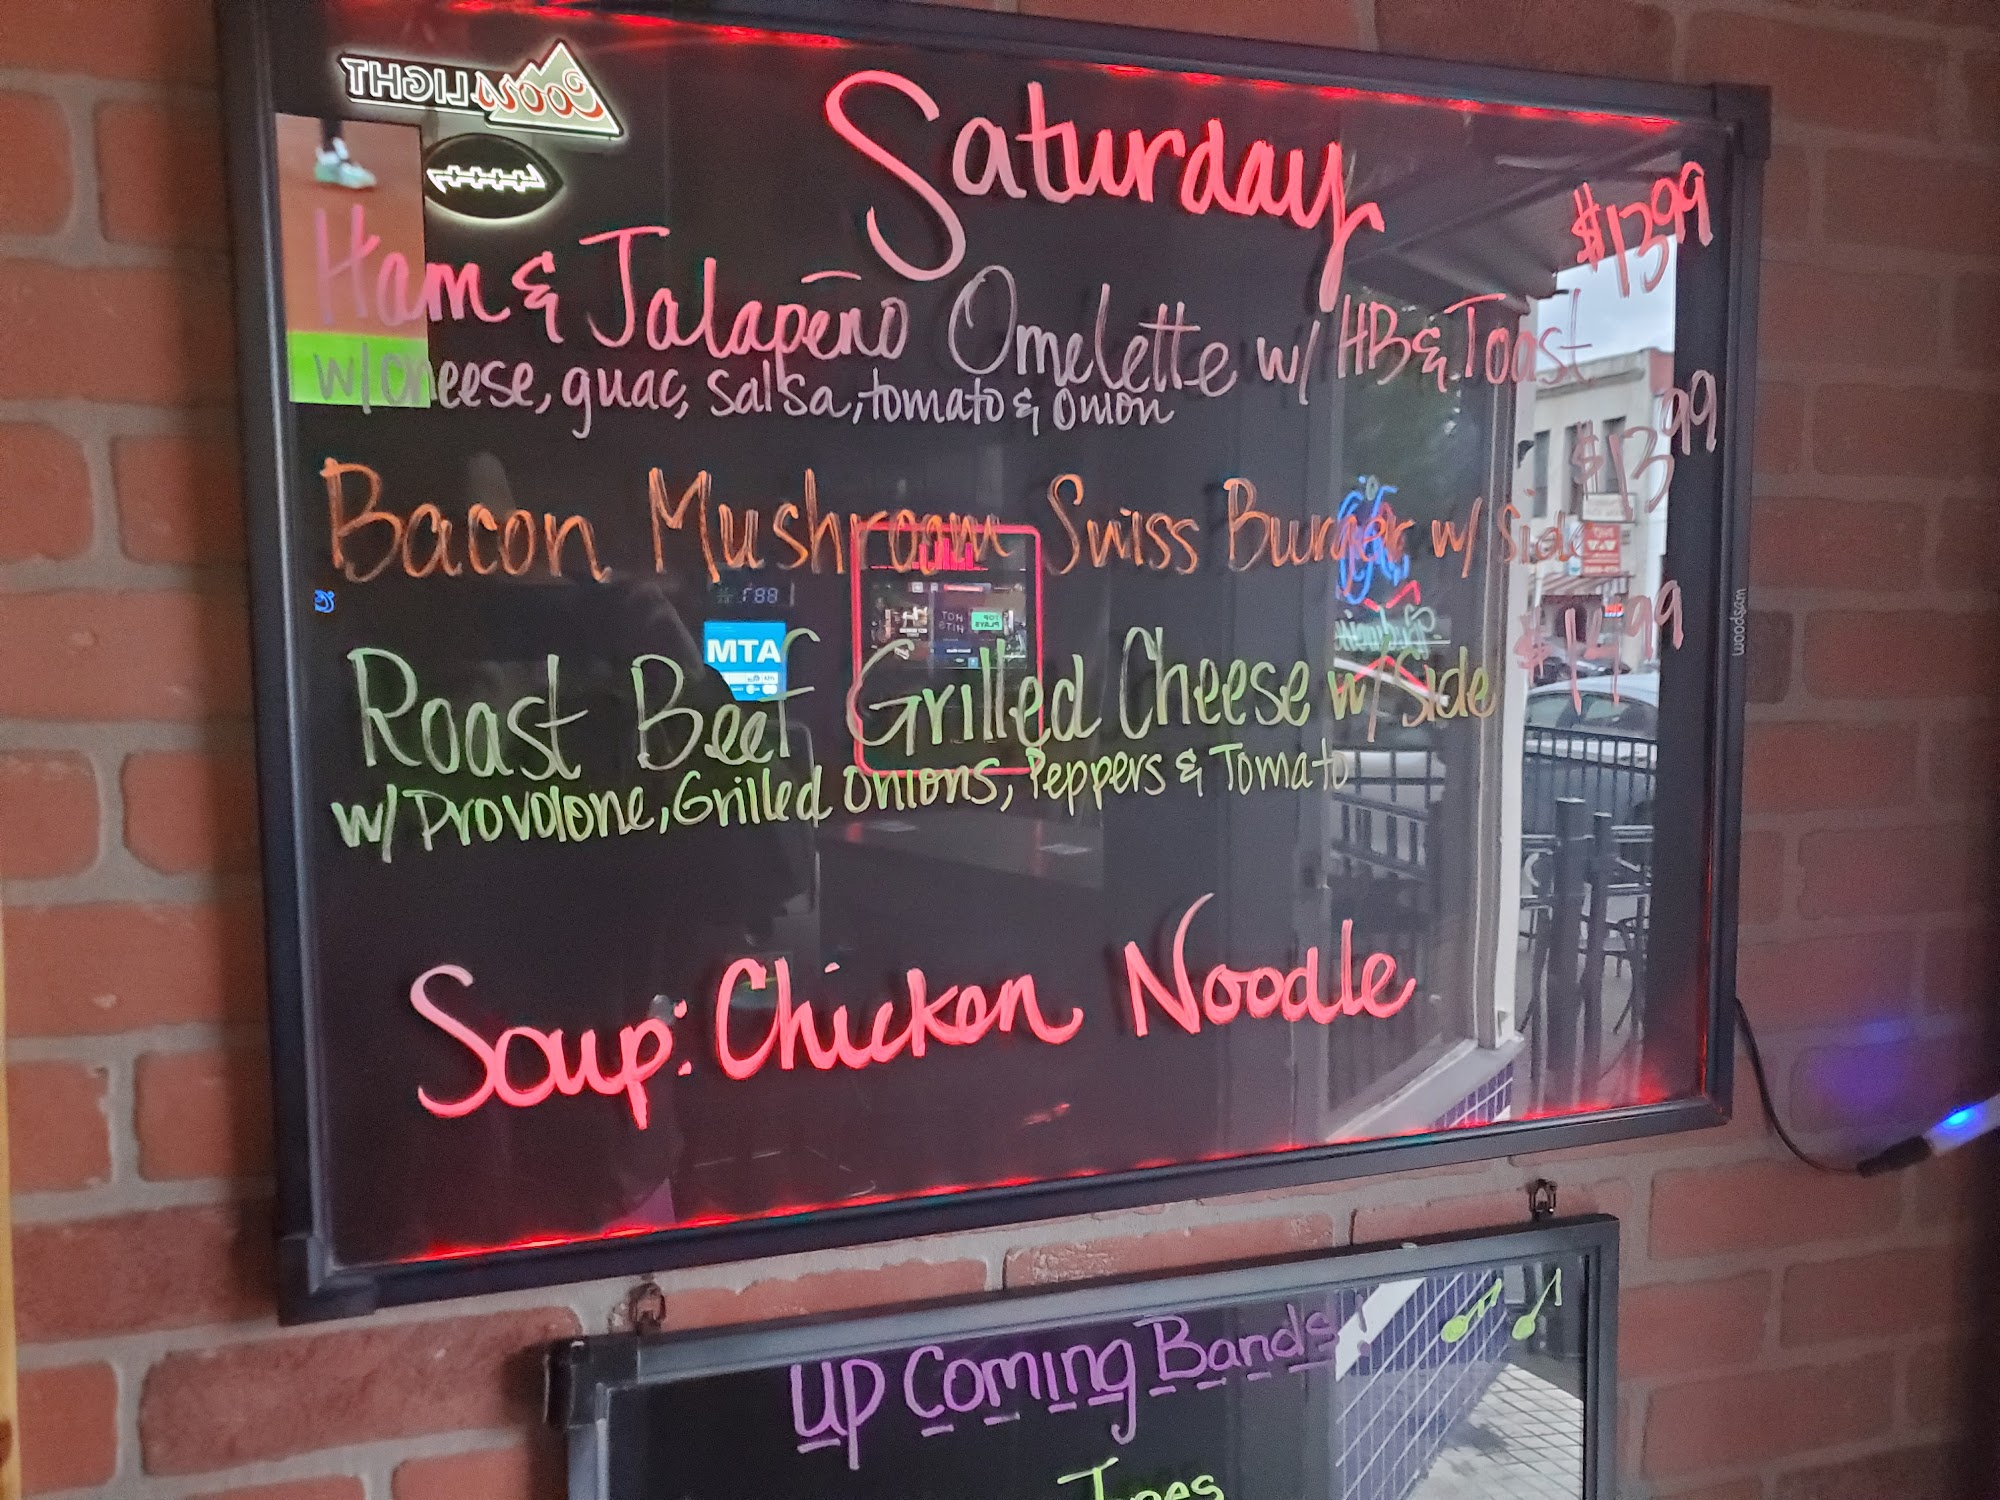 Coors LIGHT
Saturday
Ham & Jalapeño Omelette w/ HB & Toast $13.99
w/ cheese, guac, salsa, tomato & onion
Bacon Mushroom Swiss Burger w/ Side $13.99
MTA
Roast Beef Grilled Cheese w/ Side $14.99
w/ Provolone, Grilled Onions, Peppers & Tomato
Soup: Chicken Noodle
woodsam
HOT HITS
TOP PLAYS
Up Coming Bands!